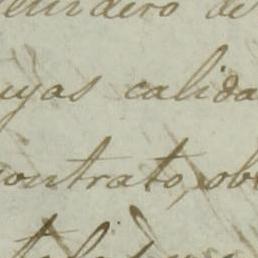 endero de
uyas calida
contrato, ob